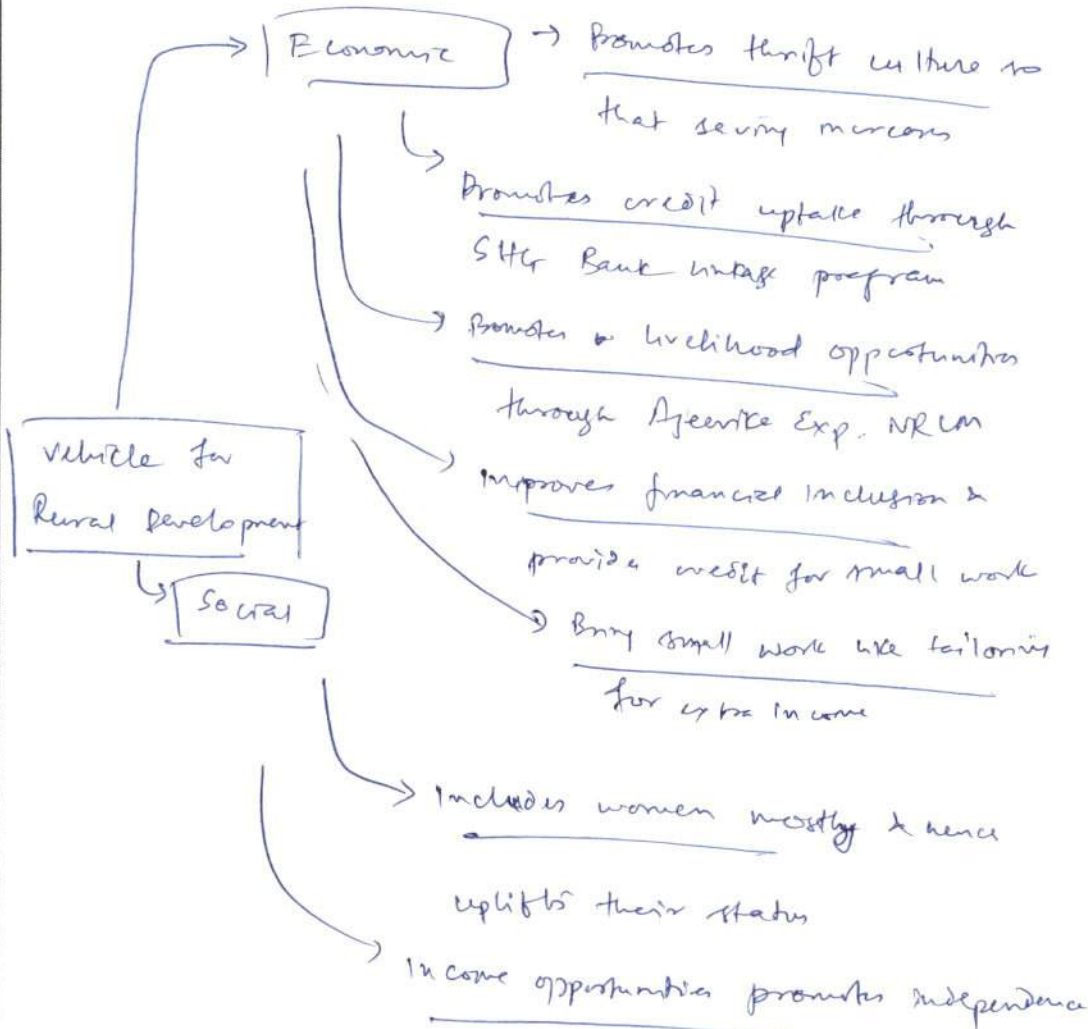 Economic
Promotes thrift culture so
that saving increases
Promotes credit uptake through
SHG Bank linkage program
Promotes livelihood opportunities
through Ajeevike Exp. NRLM
Improves financial inclusion &
provide credit for small work
Bring small work like tailoring
for extra income
Vehicle for
Rural Development
Social
Includes women mostly & hence
uplifts their status
Income opportunities promotes independence